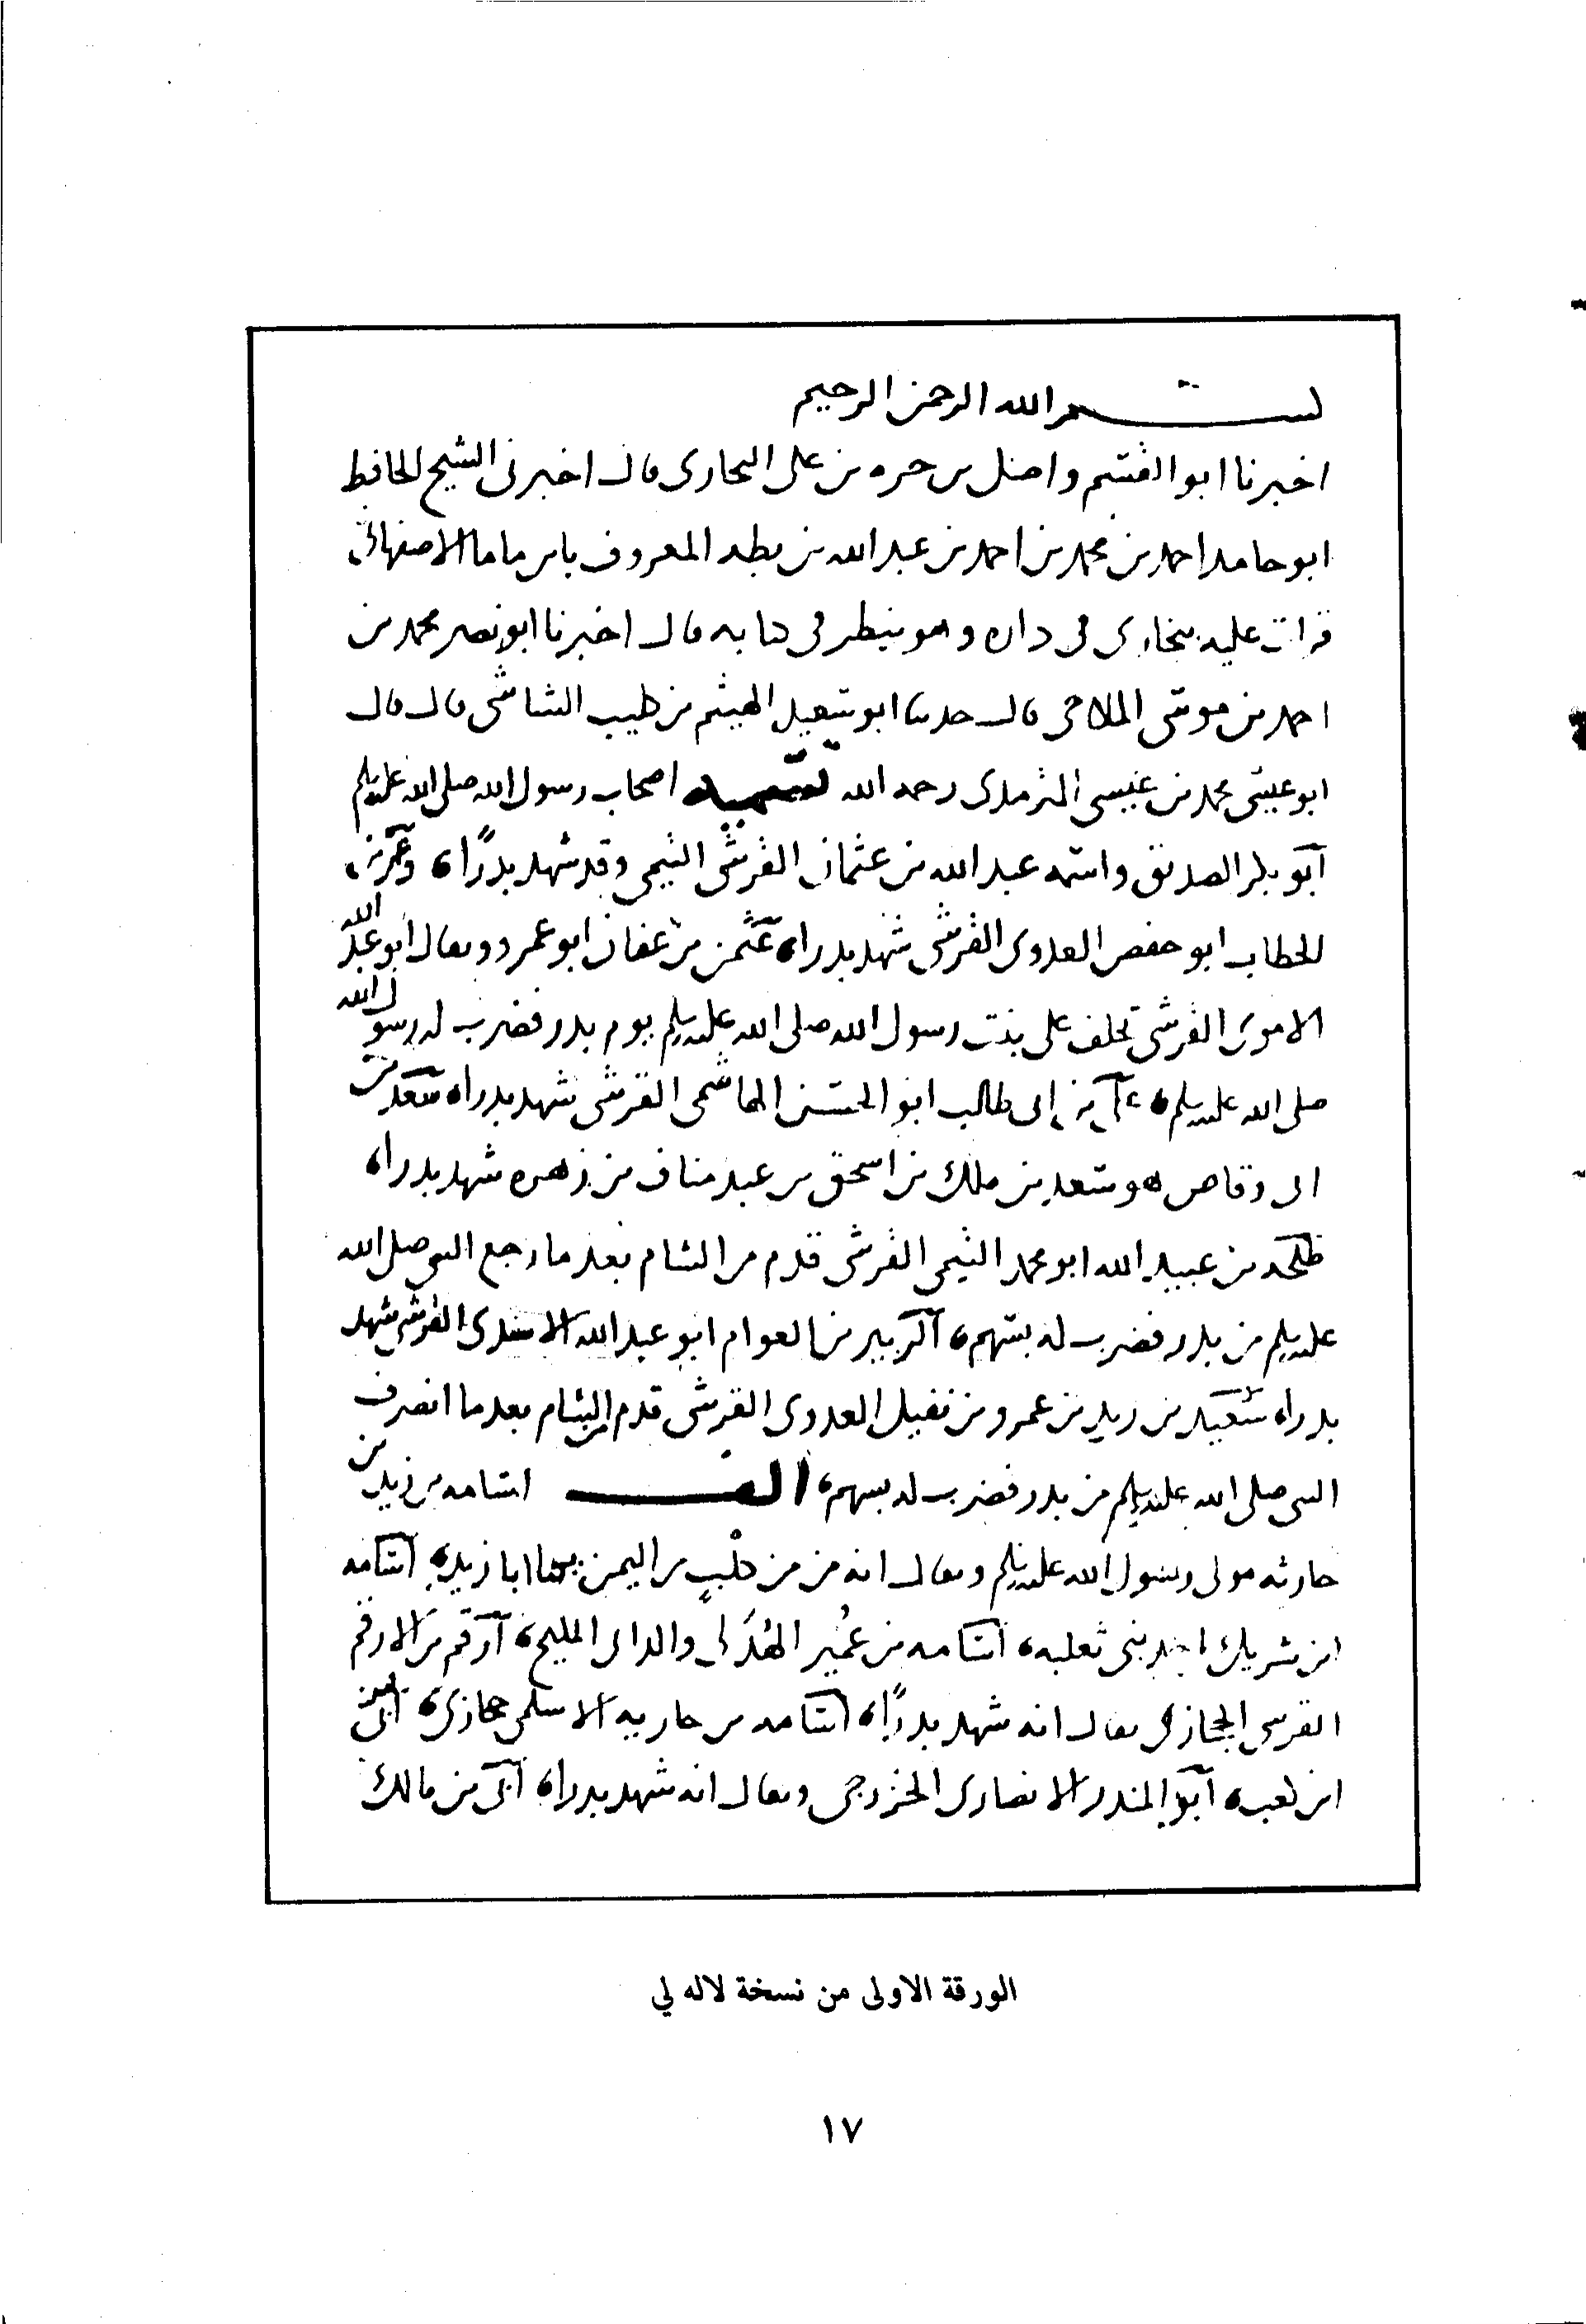 بسم الله الرحمن الرحيم
اخبرنا ابو القسم واصل بن حمزه بن على البخارى قال اخبرنى الشيخ الحافظ
ابو حامد احمد بن محمد بن احمد بن عبد الله بن المعروف بابن ماما الاصفهانى
قرات عليه ببخارى فى داره وهو ينظر فى كتابه قال اخبرنا ابو نصر محمد بن
احمد بن موسى الملاحمى قال حدثنا ابو سعيد الهيثم بن كليب الشاشى قال قال
ابو عيسى محمد بن عيسى الترمذى رحمه الله تسميه اصحاب رسول الله صلى الله عليه وسلم
ابو بكر الصديق واسمه عبد الله بن عثمان القرشى التيمى وقد شهد بدرًا ه وعمر بن
الخطاب ابو حفص العدوى القرشى شهد بدرا ه عثمن بن عفان ابو عمرو ويقال ابو عبد الله
الاموى القرشى تخلف على بنت رسول الله صلى الله عليه وسلم يوم بدر فضرب له رسول الله
صلى الله عليه وسلم ه على بن ابى طالب ابو الحسن الهاشمى القرشى شهد بدرا ه سعد بن
ابى وقاص هو سعد بن ملك بن اسحق بن عبد مناف بن زهره شهد بدرا ه
طلحه بن عبيد الله ابو محمد التيمى القرشى قدم من الشام بعد ما رجع النبى صلى الله
عليه وسلم من بدر فضرب له بسهم ه الزبير بن العوام ابو عبد الله الاسدى القرشى شهد
بدرا ه سعيد بن زيد بن عمرو بن نفيل العدوى القرشى قدم من الشام بعد ما انصرف
النبى صلى الله عليه وسلم من بدر فضرب له بسهم ه الف اسامه بن زيد بن
حارثه مولى رسول الله صلى الله عليه وسلم ويقال انه من من كلبٍ من اليمن يكنا ابا زيد ه اسامه
ابن شريك احد بنى ثعلبه ه اسامه بن عُمير الهُذَلى والد ابى المليح ه ارقم بن الارقم
القرشى الحجازى يقال انه شهد بدرًا ه اسامه بن حاريه الاسلمى حجازى ه ابى
ابن كعب ه ابو المنذر الانصارى الخزرجى ويقال انه شهد بدرا ه ابى بن مالك
الورقة الاولى من نسخة لاله لي
١٧